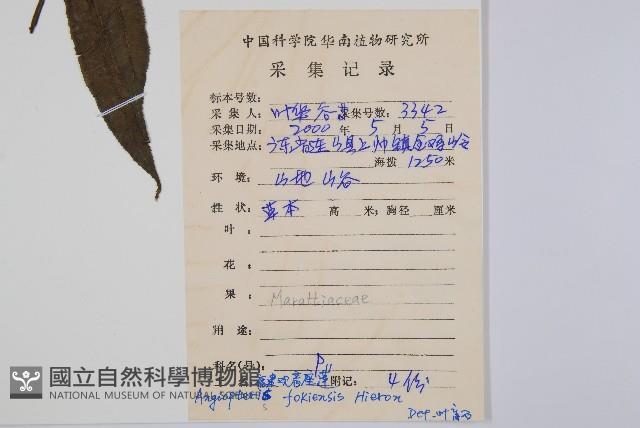 中国科学院华南植物研究所
采集记录
标本号数:
采集人: 叶华谷 采集号数: 3342
采集日期: 2000 年 5 月 5 日
采集地点: 广东省连山县上帅镇
海拨 1250 米
环境: 山地 山谷
性状: 草本 高 米; 胸径 厘米
叶:
花:
果: Marattiaceae
用途:
科名(号): P11
福建观音座莲 附记: 4份
國立自然科學博物館
NATIONAL MUSEUM OF NATURAL
Angiopteris fokiensis Hieron
Det. 叶